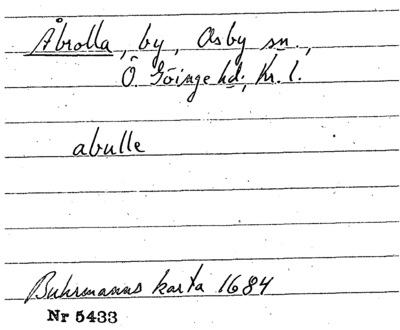 Åbrolla, by, Osby sn.,
Ö. Göinge hd, Kr. l.
abulle
Buhrmanns karta 1684
Nr 5433